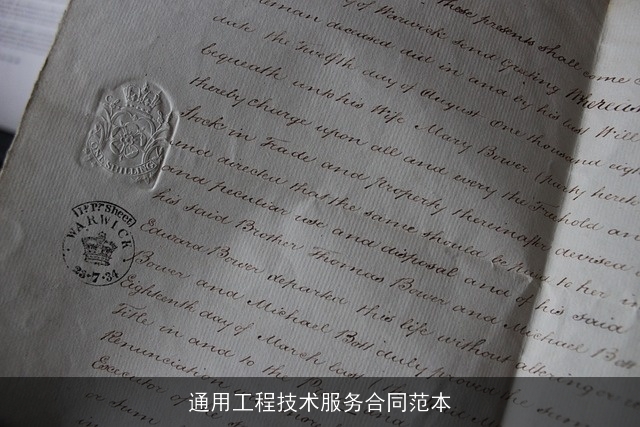 these presents shall come
of Warwick send Greeting Whereas
deceased did in and by his last Will
date the Twelfth day of August One thousand eigh
bequeath unto his Wife Mary Bower (party here
thereby charge upon all and every the Freehold an
Stock in Trade and property thereinafter devised
and directed that the same should be paid to her
and peculiar use and disposal and of his said
his said Brother Thomas Bower and Michael Bott
Edward Bower departed this life without altering or
Bower and Michael Bott duly proved the
Eighteenth day of March last
Title in and to the
Renunciation
Executor of
or sum
ONE SHILLING
Pr Sheet
WARWICK
23·7·34
通用工程技术服务合同范本